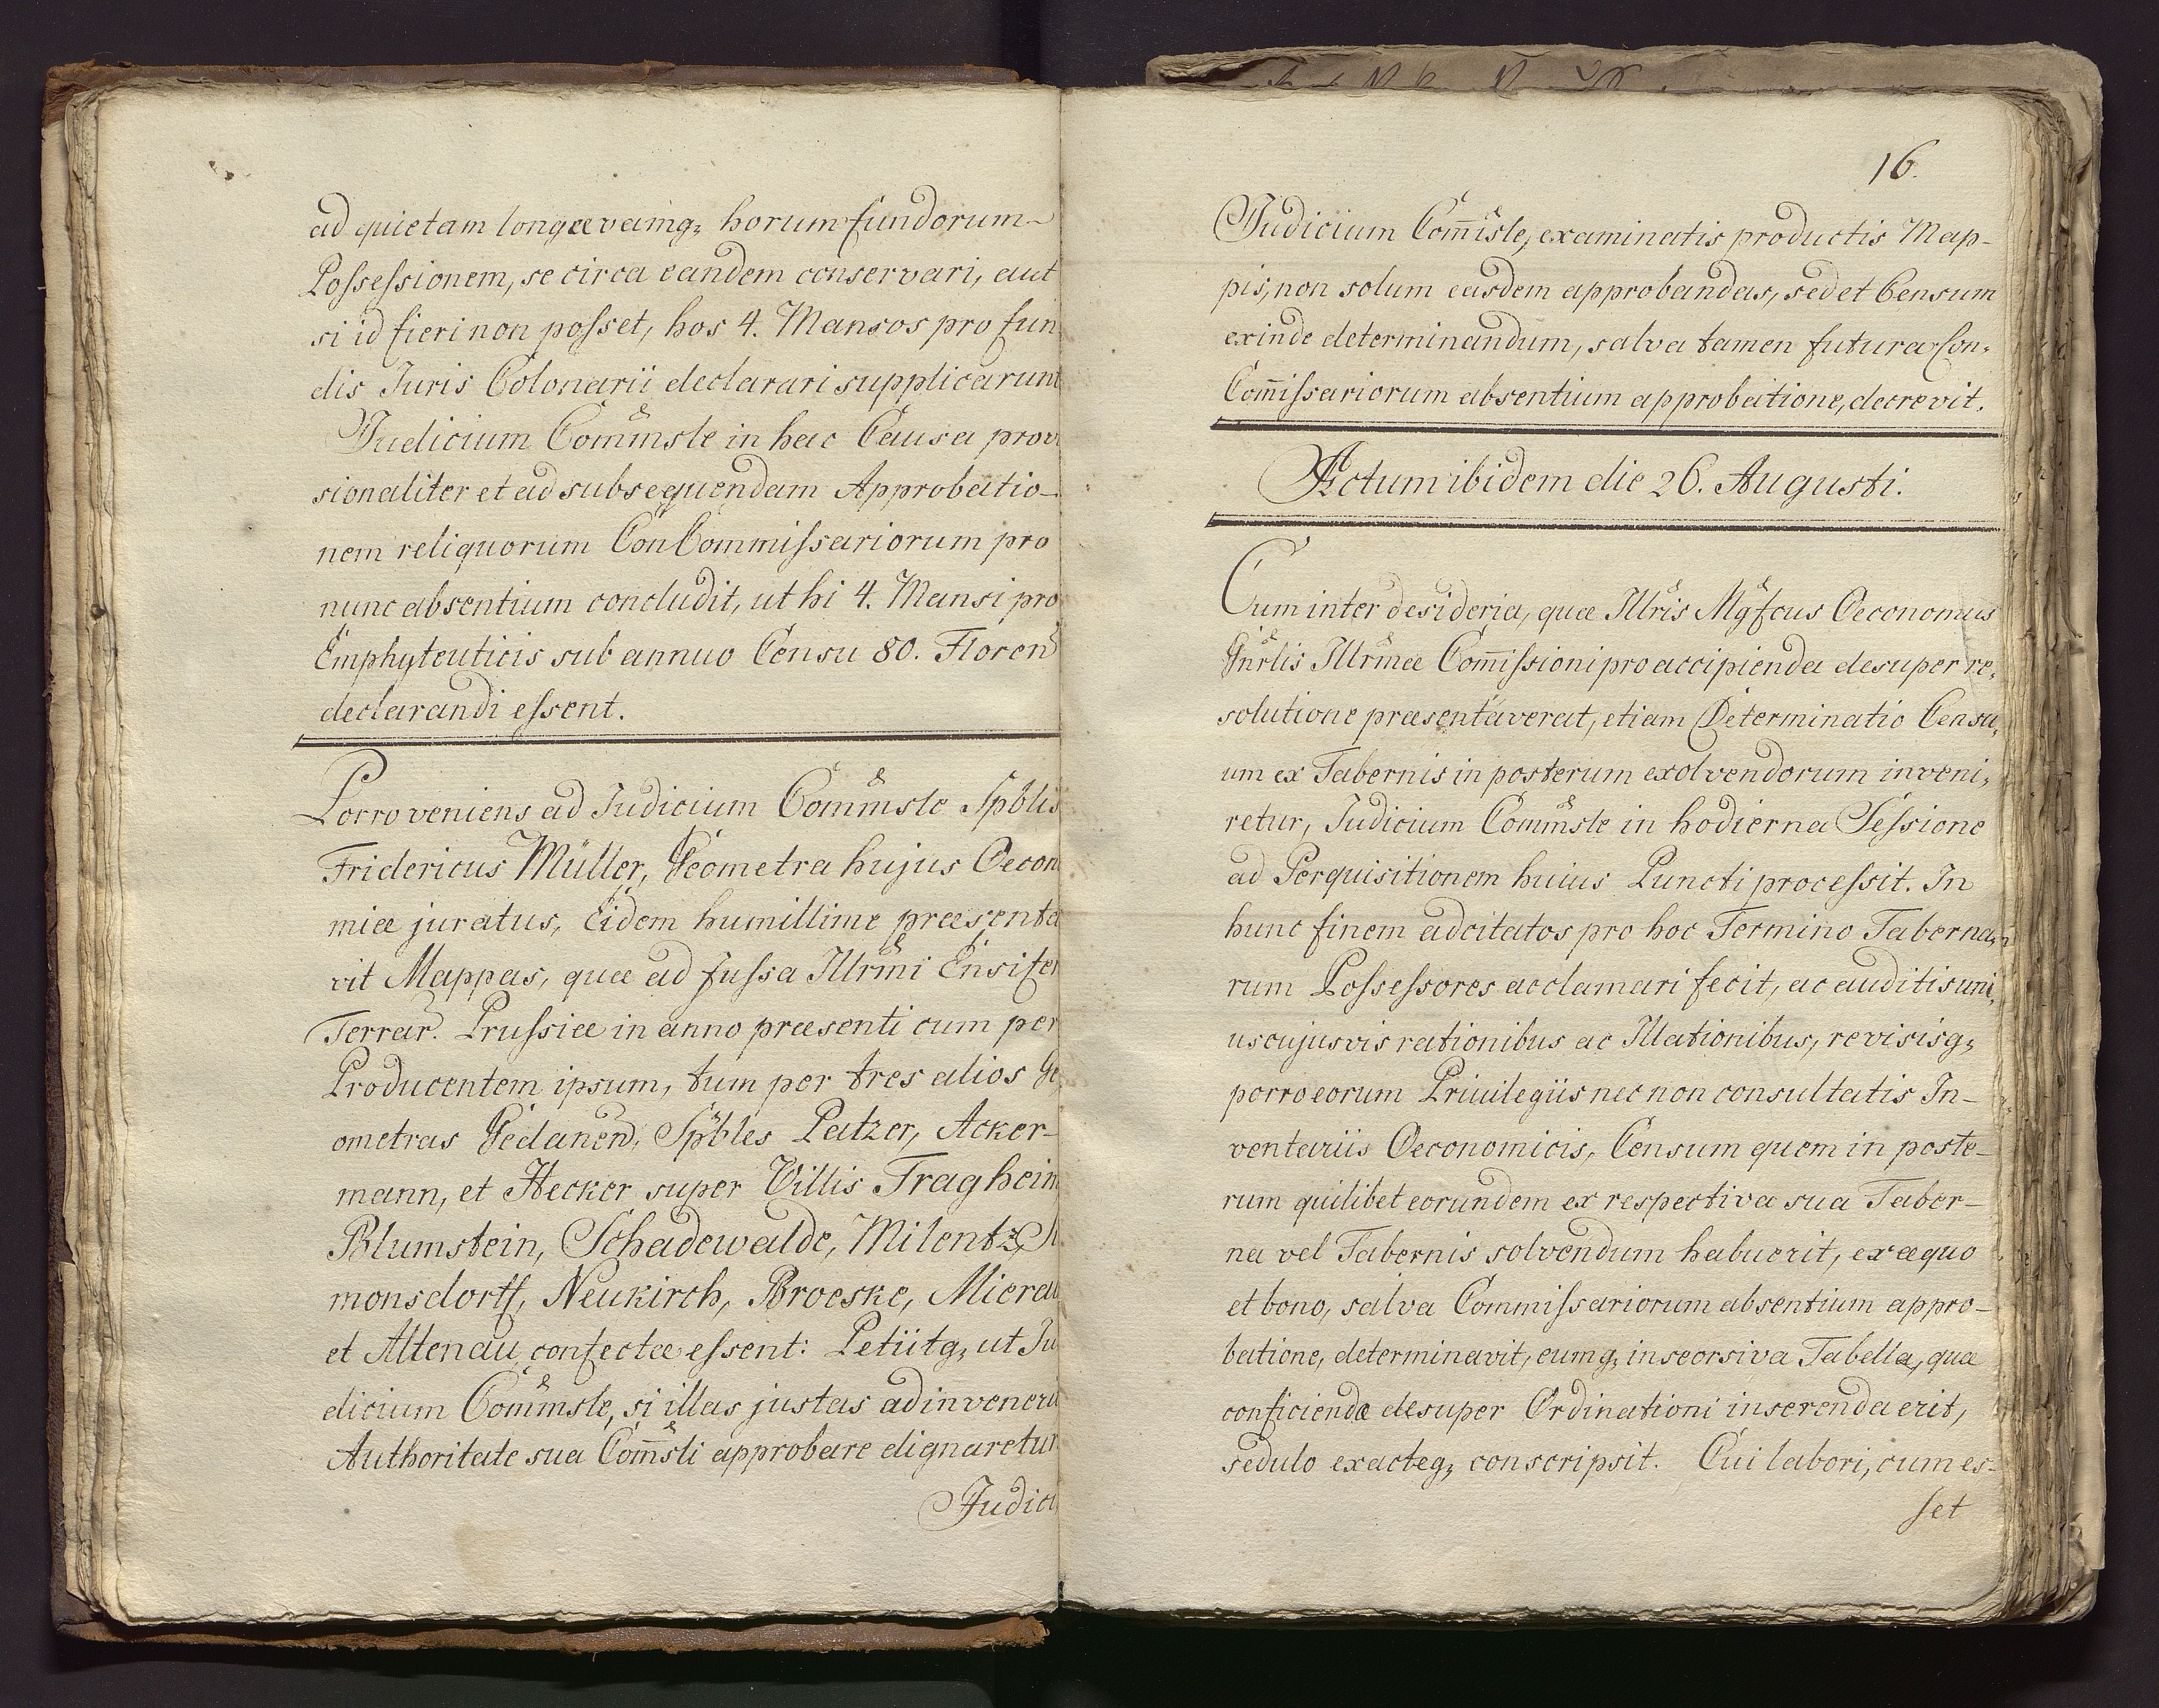 ad quietam longaevamq; horum fundorum
Possessionem, se circa eandem conservari, aut
si id fieri non posset, hos 4. Mansos pro fun
dis Juris Colonarii declarari supplicarunt
Judicium Commsle in hac Causa prov
sionaliter et ad subsequendam Approbatio-
nem reliquorum ConCommissariorum pro
nunc absentium concludit, ut hi 4. Mansi pro
Emphyteuticis sub annuo Censu 80. Floren
declarandi essent.
Porro veniens ad Judicium Commsle Spblis
Fridericus Müller, Geometra hujus Oecon
miae juratus, Eidem humillime praesenta
vit Mappas, quae ad jussa Illrmi Ensifer
Terrar. Prussiae in anno praesenti cum per
Producentem ipsum, tum per tres alios Ge
ometras Gedanen. Spbles Patzer, Acker-
mann, et Hecker super Villis Tragheim
Blumstein, Schadewalde, Milentz,
monsdorff, Neukirch, Broeske, Mierau
et Altenau confectae essent: Petiitq; ut Ju
dicium Commsle, si illas justas adinveneri
Authoritate sua Commsli approbare dignaretur
Judici
16.
Judicium Commsle, examinatis productis Map-
pis, non solum easdem approbandas, sed et Censum
exinde determinandum, salva tamen futura Con-
Commissariorum absentium approbatione, decrevit.
Actum ibidem die 26. Augusti.
Cum inter desideria, quae Illris Mgfcus Oeconomus
Gnrlis Illrmae Commissioni pro accipienda desuper re-
solutione praesentaverat, etiam Determinatio Censu-
um ex Tabernis in posterum exolvendorum inveni-
retur, Judicium Commsle in hodierna Sessione
ad Perquisitionem huius Puncti processit. In
hunc finem adcitatos pro hoc Termino Taberna-
rum Possessores acclamari fecit, ac auditis uni-
uscujusvis rationibus ac Illationibus, revisisq;
porro eorum Privilegiis nec non consultatis In-
ventariis Oeconomicis, Censum quem in poste-
rum quilibet eorundem ex respectiva sua Taber-
na vel Tabernis solvendum habuerit, ex aequo
et bono, salva Commissariorum absentium appro-
batione, determinavit, eumq; in seorsiva Tabella, quae
conficienda desuper Ordinationi inserenda erit,
sedulo exacteq; conscripsit. Cui labori, cum es-
set